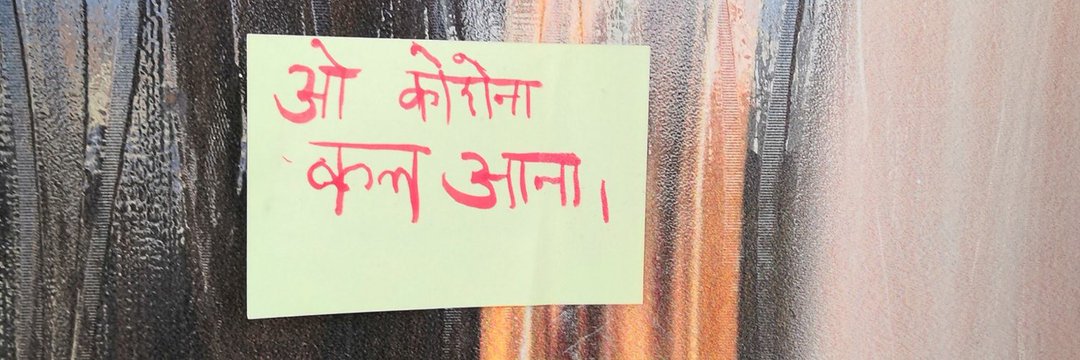 ओ कोरोना
कल आना।